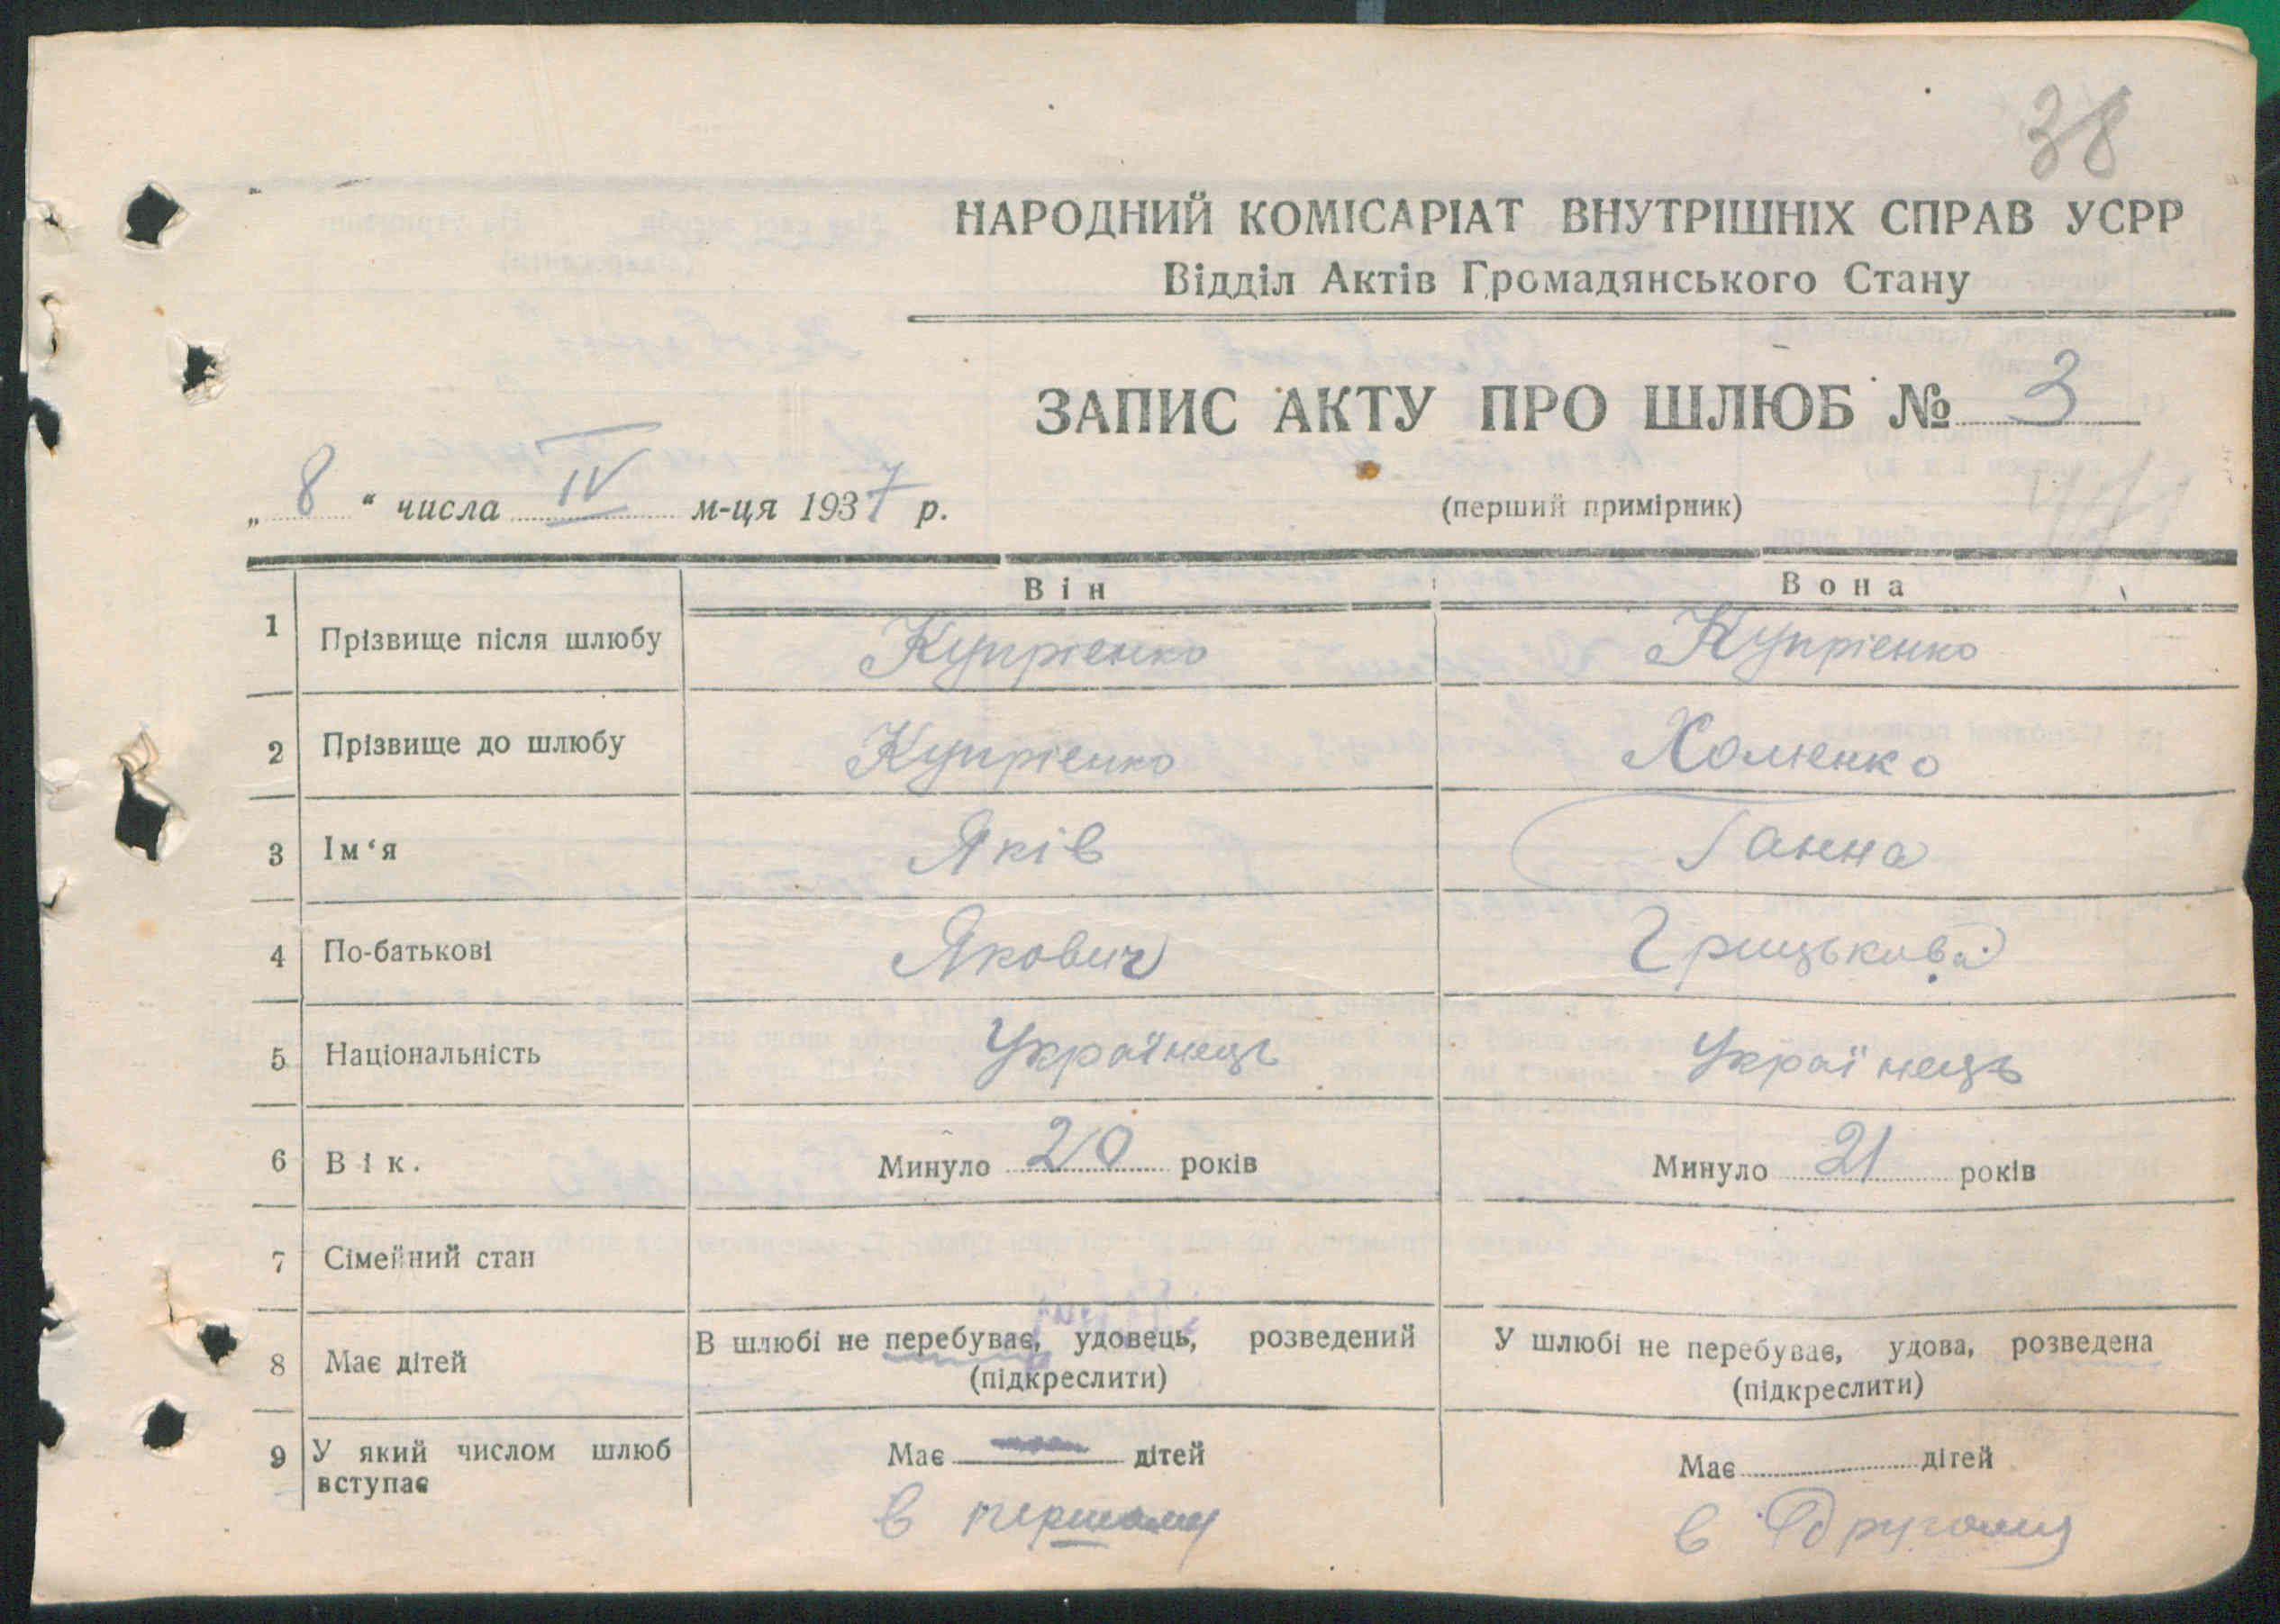 38
НАРОДНИЙ КОМІСАРІАТ ВНУТРІШНІХ СПРАВ УСРР
Відділ Актів Громадянського Стану
ЗАПИС АКТУ ПРО ШЛЮБ № 3
„ 8 “ числа IV м-ця 1937 р.
(перший примірник)
Він Вона
1 Прізвище після шлюбу Купрієнко Купрієнко
2 Прізвище до шлюбу Купрієнко Хоменко
3 Ім‘я Яків Ганна
4 По-батькові Якович Грицькова
5 Національність Українець Українець
6 Вік. Минуло 20 років Минуло 21 років
7 Сімейний стан
8 Має дітей В шлюбі не перебуває, удовець, розведений У шлюбі не перебуває, удова, розведена
(підкреслити) (підкреслити)
9 У який числом шлюб вступає Має дітей Має дітей
в першому в другому